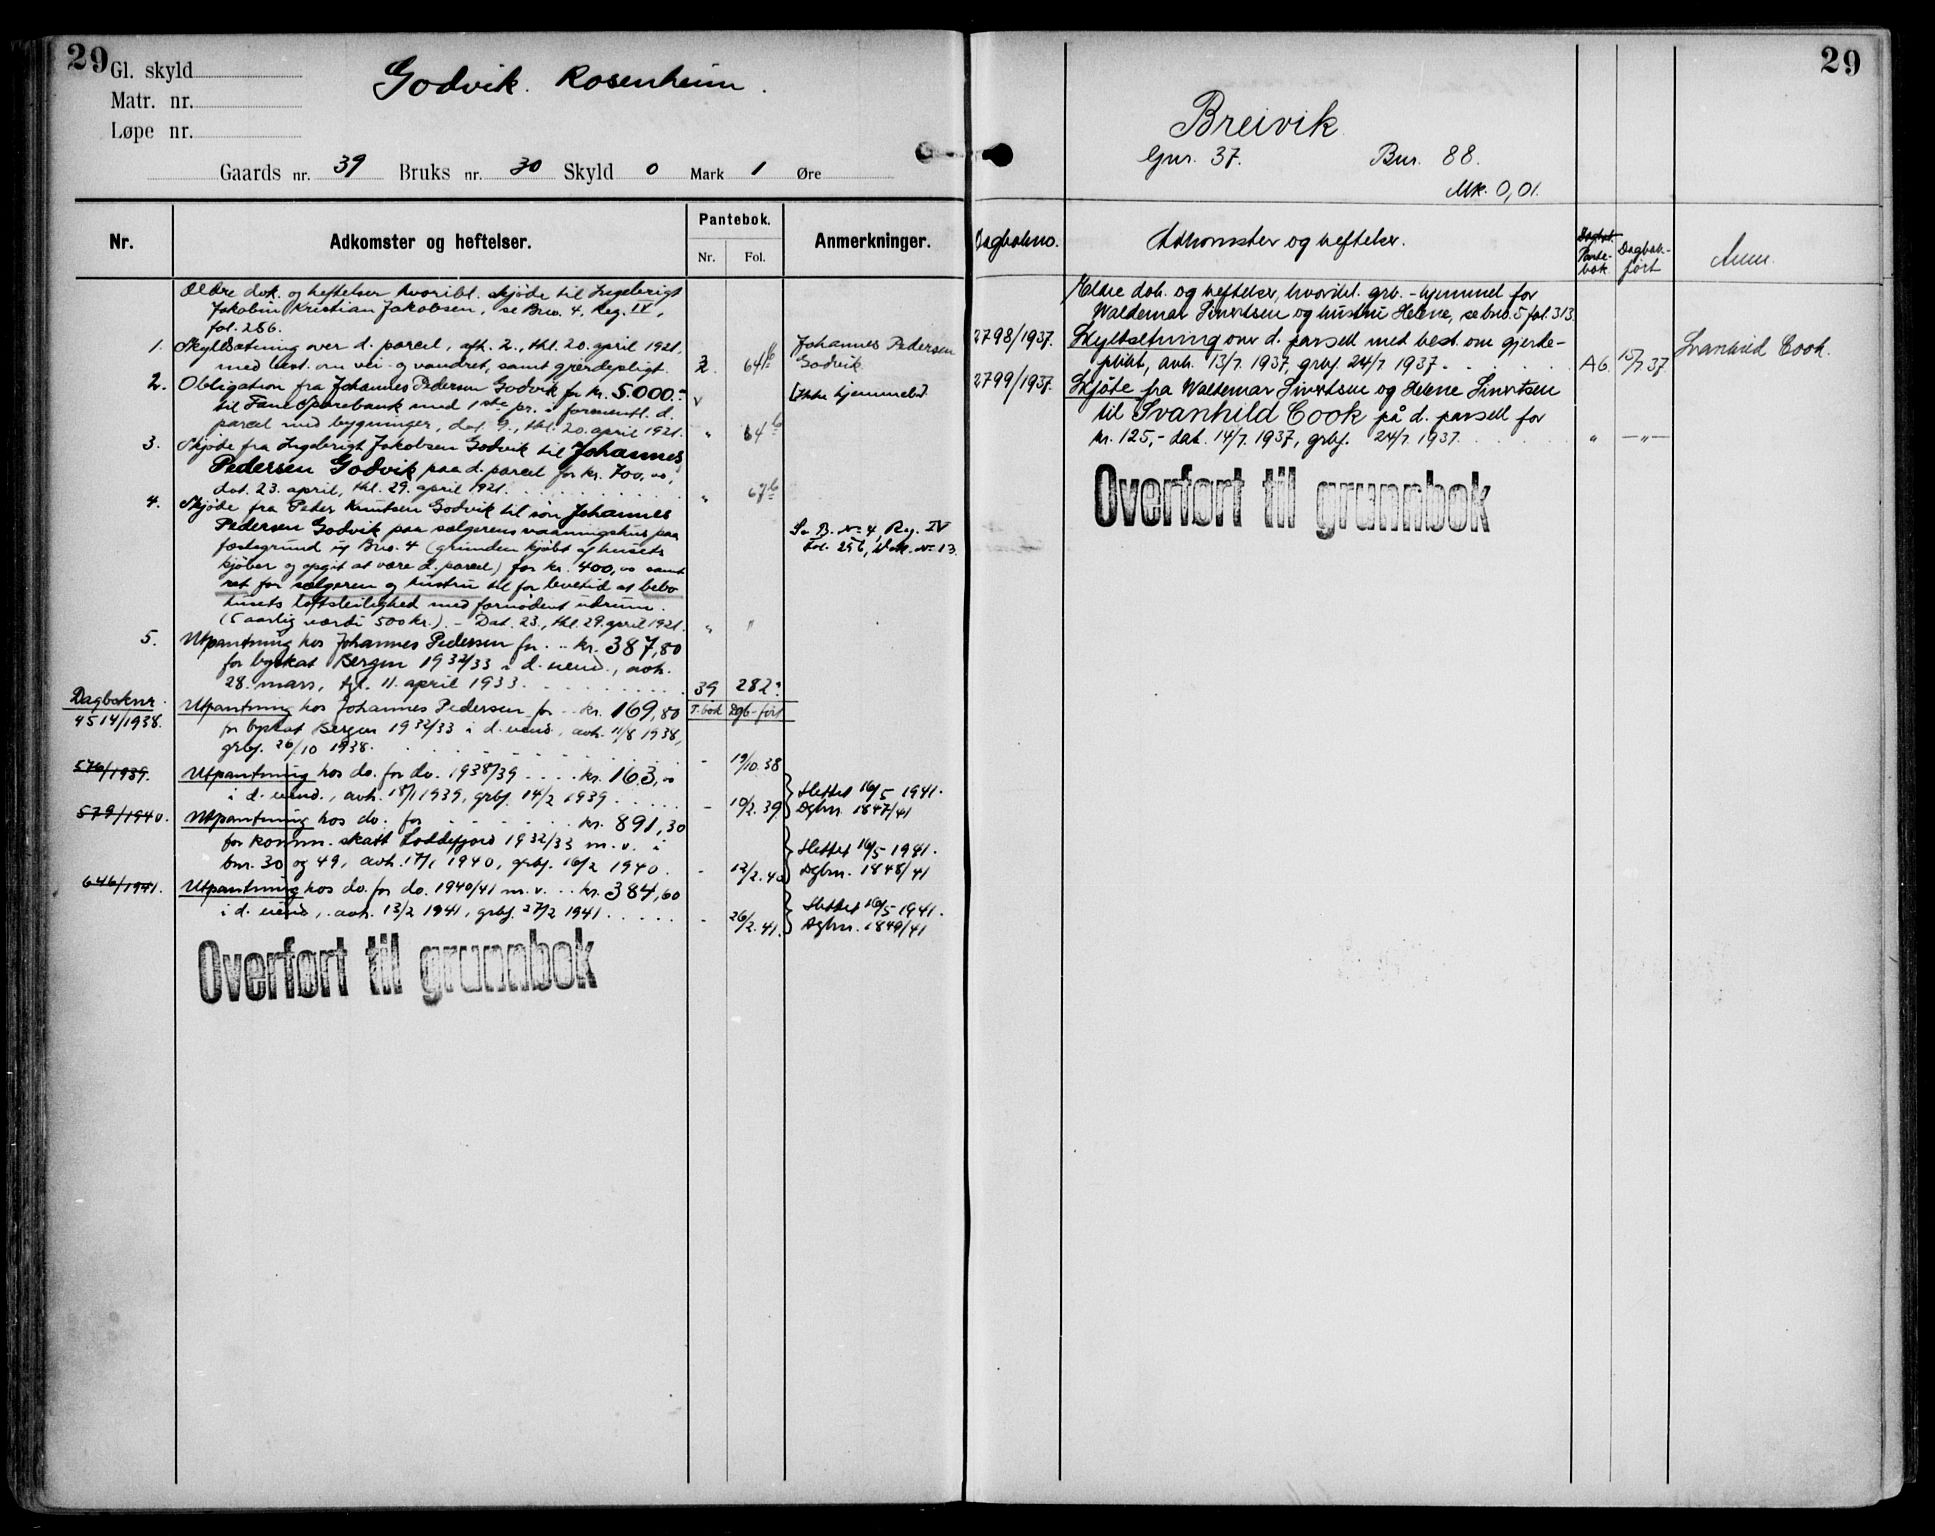 29
Gl. skyld
Matr. nr.
Løpe nr.
Godvik. Rosenheim.
Gaards nr. 39 Bruks nr. 30 Skyld 0 Mark 1 Øre
Nr. Adkomster og heftelser. Pantebok. Nr. Fol. Anmerkninger.
Ældre dok. og heftelser hvoribl. skjøde til Ingebrigt
Jakobin Kristian Jakobsen, se Bno. 4, Reg. IV,
fol. 256.
1. Skyldsætning over d. parcel, afh. 2., thl. 20. april 1921,
med best. om vei- og vandret, samt gjerdepligt. 2. 64b
Johannes Pedersen
Godvik.
2. Obligation fra Johannes Pedersen Godvik for kr. 5000.-
til Fane Sparebank med 1ste pr. i forennevnt. d.
parcel med bygninger, dat. 9., thl. 20. april 1921. " 64b
[Ikke hjemmelsd.
3. Skjøde fra Ingebrigt Jakobsen Godvik til Johannes
Pedersen Godvik paa d. parcel for kr. 700,00,
dat. 23. april, thl. 29. april 1921. " 67b
4. Skjøde fra Peder Knutsen Godvik til søn Johannes
Pedersen Godvik paa sælgerens vaaningshus paa
festegrund ig Bno. 4 (grunden kjøbt af husets
kjøber og opgit at være d. parcel) for kr. 400,00 samt
ret for sælgeren og hustru til for levetid at bebo
husets loftsleilighed med fornødent uthrum.
(5 aarlig værdi 500 kr.). - Dat. 23., thl. 29. april 1921. " "
Se B. No 4, Reg. IV
Fol. 256, Dok. No 13.
5. Utpantning hos Johannes Pedersen for .. kr. 387,80
for byskat Bergen 1932/33 i d. eiend., avh.
28. mars, tgl. 11. april 1933. 39 282a
Dagboknr. P.bok Dgb-ført
4514/1938. Utpantning hos Johannes Pedersen for .. kr. 169,80
for byskat Bergen 1932/33 i d. eiend., avh. 11/8 1938,
grbf. 26/10 1938. - 19/10.38
576/1939. Utpantning hos do. for do. 1938/39 .... kr. 163,00
i d. eiend., avh. 18/1 1939, grbf. 14/2 1939 - 10/2.39
Slettet 16/5 1941.
Dgbnr. 1847/41
579/1940. Utpantning hos do. for kr. 891,30
for komm. skatt Loddefjord 1932/33 m. v. i
bnr. 30 og 49, avh. 17/1 1940, grbf. 16/2 1940. - 12/2.40
Slettet 16/5 1941.
Dgbnr. 1848/41
646/1941. Utpantning hos do. for do. 1940/41 m. v. .. kr. 384,60
i d. eiend., avh. 13/2 1941, grbf. 27/2 1941. - 26/2.41.
Slettet 16/5 1941.
Dgbnr. 1849/41
Overført til grunnbok
29
Breivik
Gnr. 37. Bnr. 88.
Mk. 0,01.
Dagbokno. Adkomster og heftelser. Dagbok. Pante-bok Dagbok-ført Anm.
Eldre dok. og heftelser, hvoribl. grb.-hjemmel for
Waldemar Sivertsen og hustru Helene, se bno. 5 fol. 313.
2798/1937. Skyldsetning over d. parsell med best. om gjerde-
plikt, avh. 13/7 1937, grbf. 24/7 1937. A6. 15/7.37 Svanhild Cook.
2799/1937. Skjøte fra Waldemar Sivertsen og Helene Sivertsen
til Svanhild Cook på d. parsell for
kr. 125,- dat. 14/7. 1937, grbf. 24/7 1937. " —"—
Overført til grunnbok